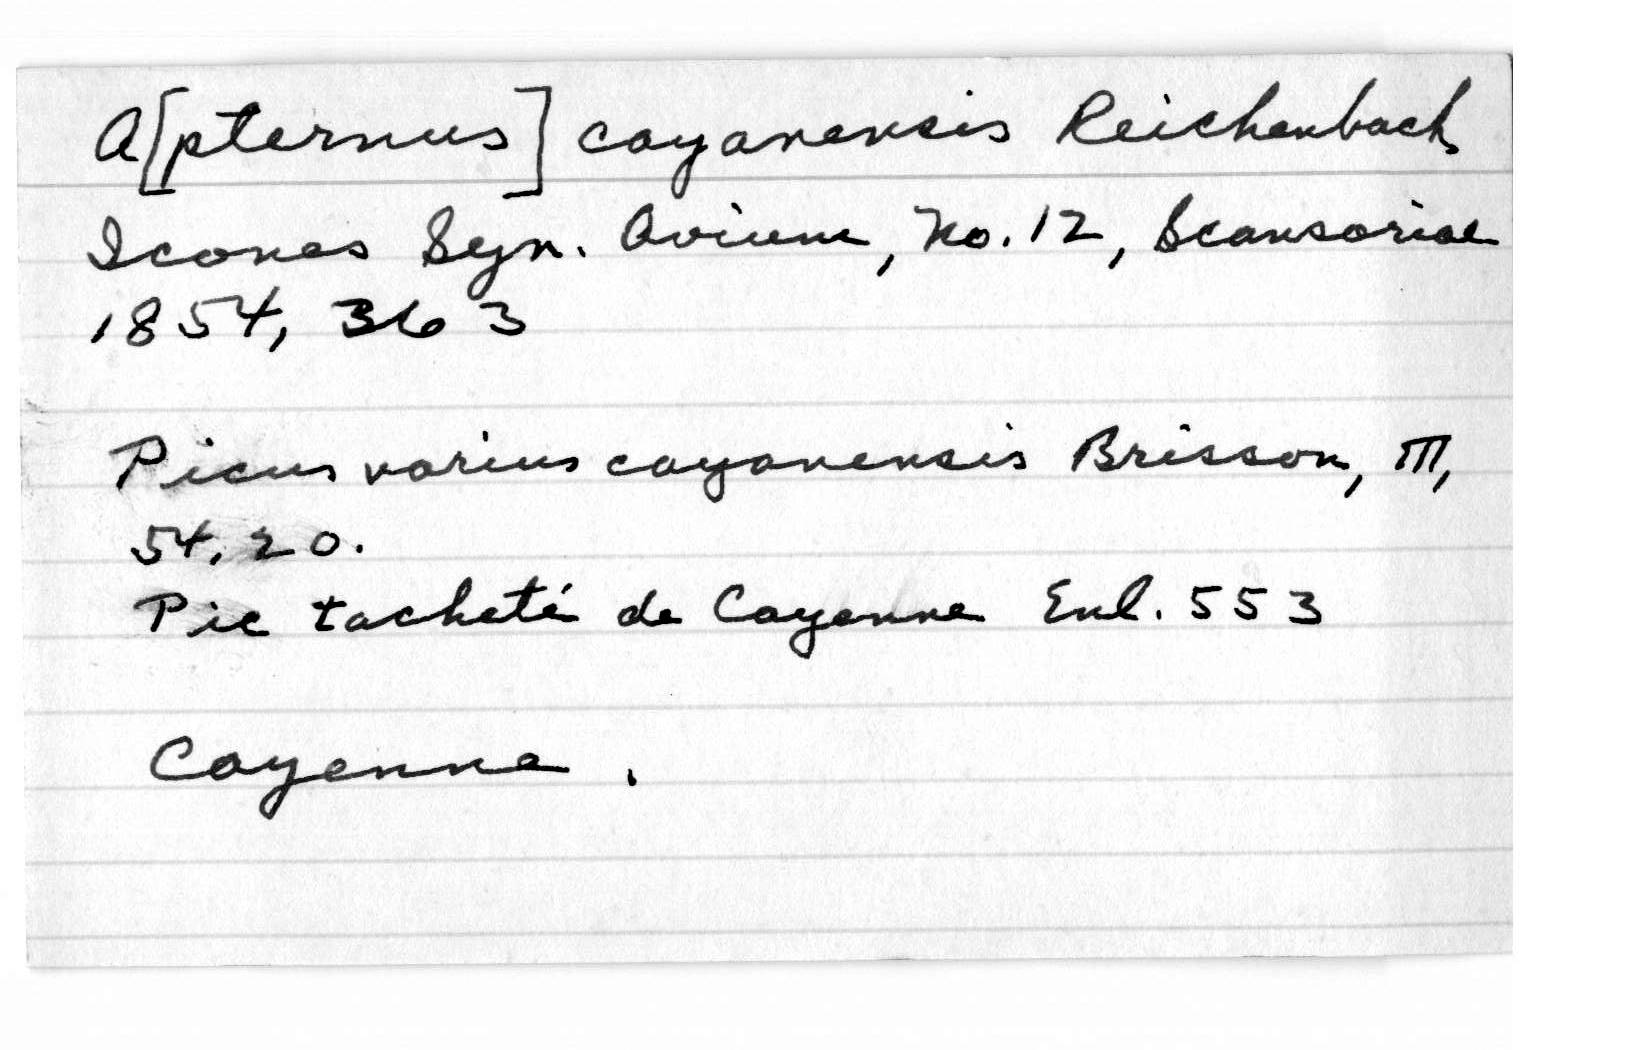 A[pternus] cayanensis Reichenbach
Icones Syn. Avium, No. 12, Scansoriae
1854, 363
Picus varius cayanensis Brisson, III,
54, 20.
Pic tacheté de Cayenne Enl. 553
Cayenne.